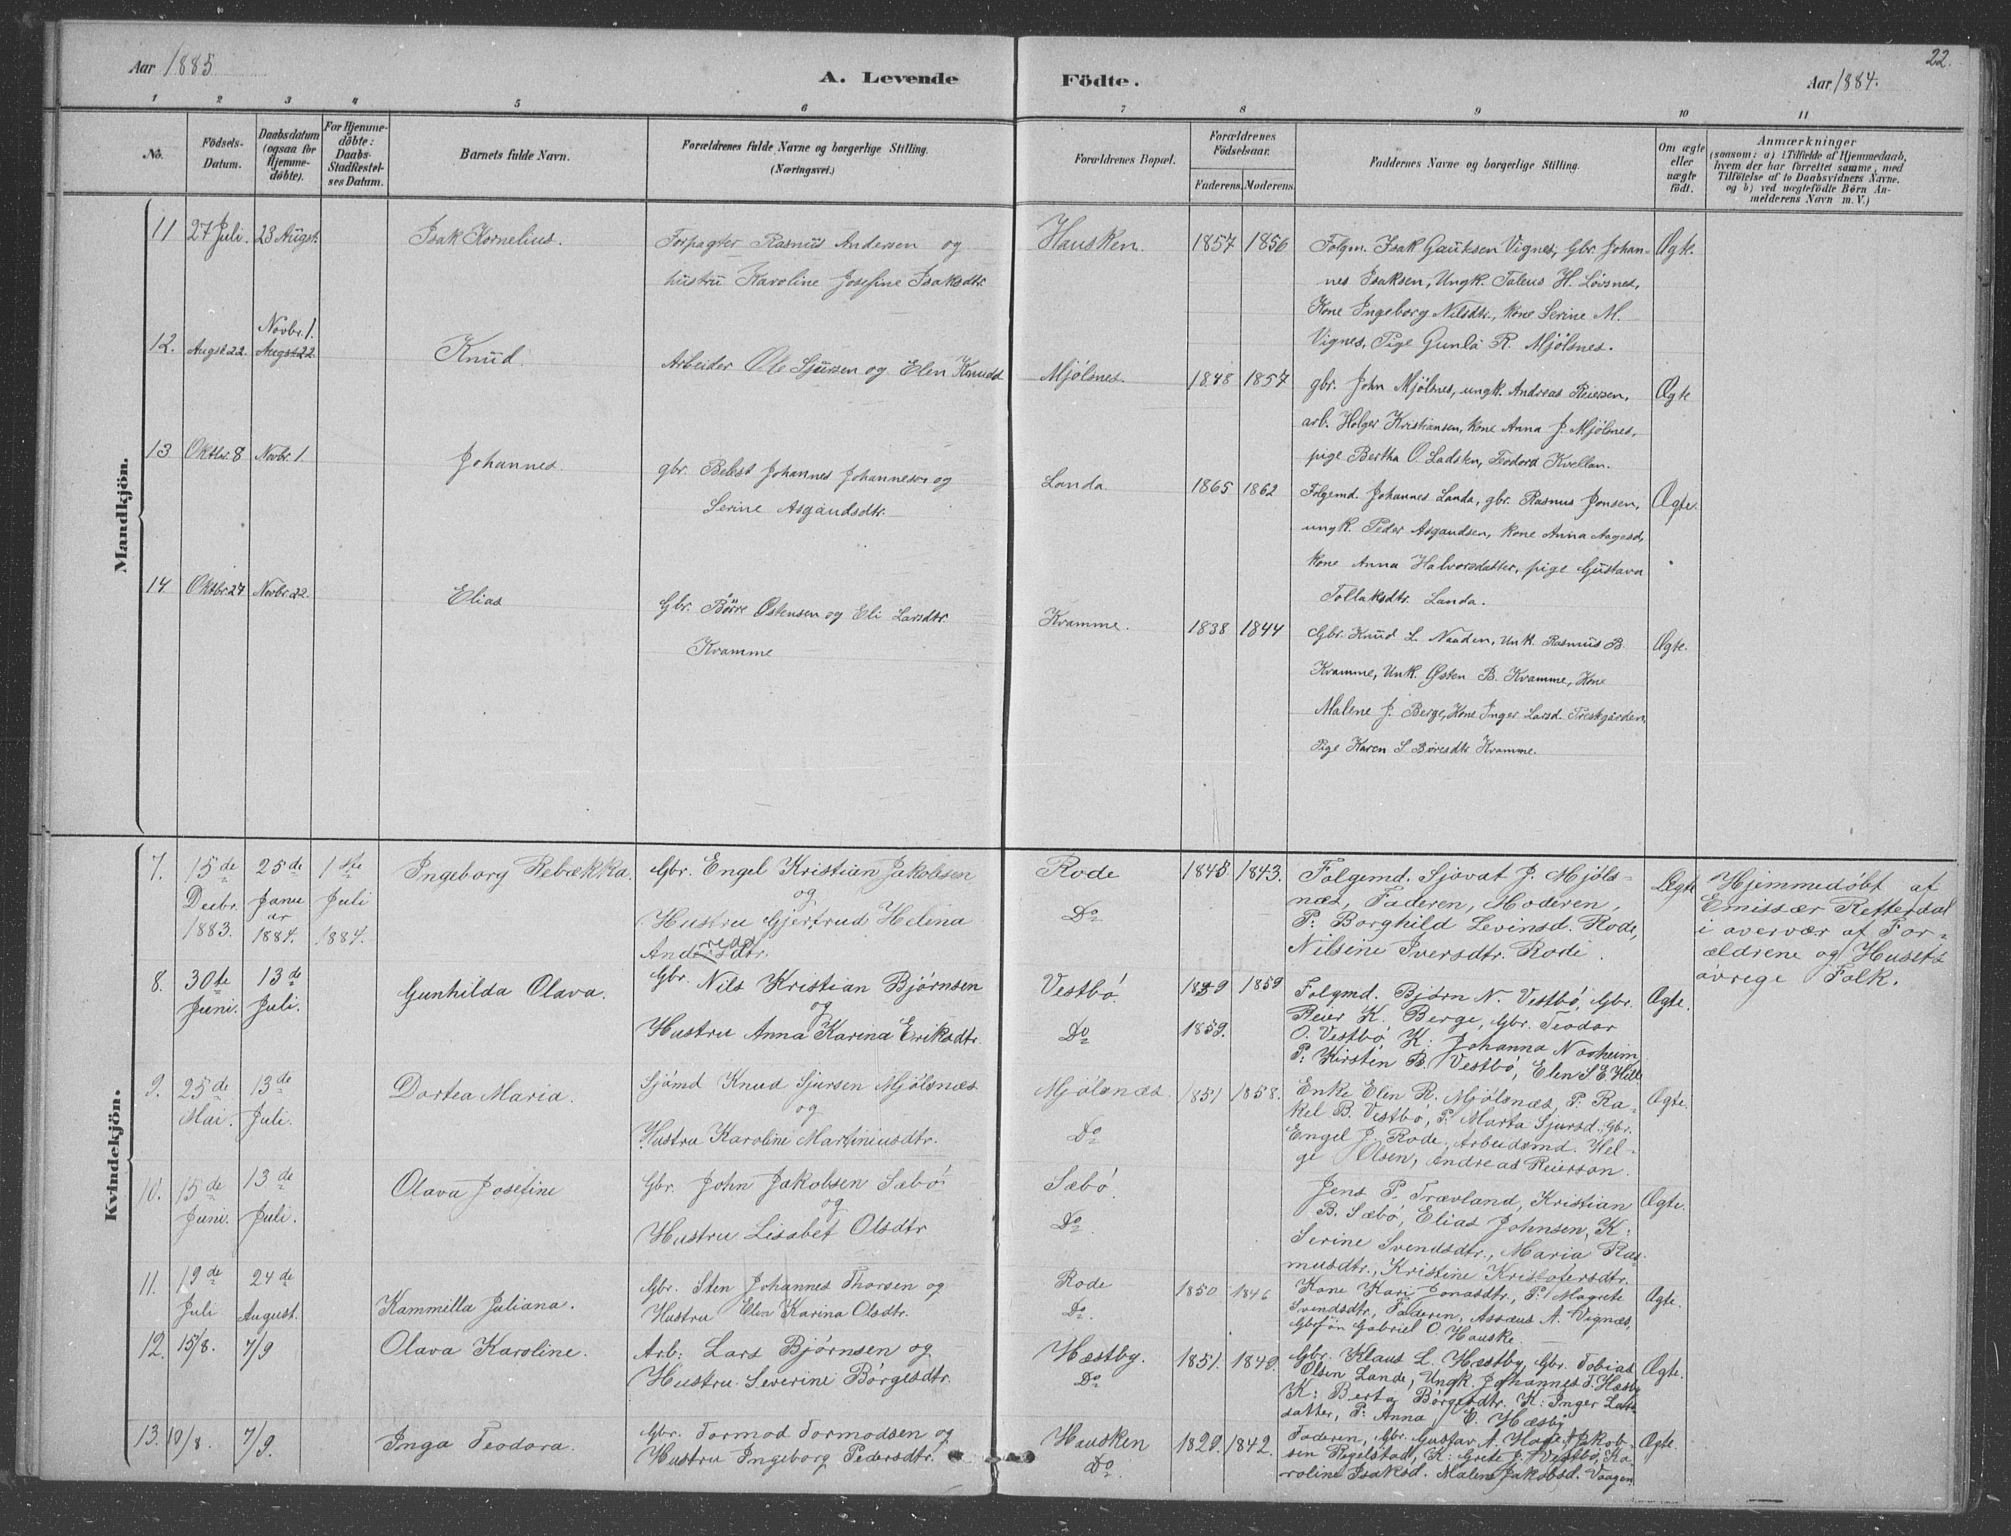 22.
Aar 1885.
A. Levende
Födte.
Aar 1884.
1 2 3 4 5 6 7 8 9 10 11
No.
Födsels-
Datum.
Daabsdatum
(ogsaa for
Hjemme-
döbte).
For Hjemme-
döbte:
Daabs-
Stadfæstel-
ses Datum.
Barnets fulde Navn.
Forældrenes fulde Navne og borgerlige Stilling.
(Næringsvei.)
Forældrenes Bopæl.
Forældrenes
Födselsaar.
Faderens. Moderens.
Faddernes Navne og borgerlige Stilling.
Om ægte
eller
uægte
födt.
Anmærkninger
(saasom: a) i Tilfælde af Hjemmedaab,
hvem der har forrettet samme, med
Tilföielse af to Daabsvidners Navne,
og b) ved uægtefödte Börn An-
melderens Navn m. V.)
Mandkjön.
11
27 Juli.
23 Augst.
Isak Kornelius.
Forpagter Rasmus Andersen og
hustru Karoline Josefine Isaksdtr.
Hausken.
1857
1856
Folgm. Isak Gauksen Vignes, Gbr. Johan-
nes Isaksen, Ungk. Talens H. Løvsnes,
Kone Ingeborg Nilsdtr., Kone Serine M.
Vignes, Pige Gunla R. Mjølsnes.
Ægte.
12.
Augst 22.
Novbr. 1.
Augst 22
Knud.
Arbeider Ole Sjursen og Elen Knudd.
Mjølsnes.
1848
1857
gbr. John Mjølsnes, ungk. Andreas Reiersen,
arb. Holger Kristiansen, Kone Anna J. Mjølsnes,
pige Bertha O. Ladsten, Teodora Kvellan.
Ægte
13
Oktbr. 8
Novbr. 1
Johannes.
gbr. Best Johannes Johannesen og
Serine Asgautsdtr.
Landa
1865
1862
Folgemd. Johannes Landa, gbr. Rasmus Jonsen,
ungk. Peder Asgautsen, kone Anna Aagesd.,
kone Anna Halvorsdatter, pige Gustava
Tollaksdtr. Landa.
Ægte.
14
Oktbr. 27
Novbr. 22.
Elias
Gbr. Börre Østensen og Eli Larsdtr.
Kramme
Kramme.
1838
1844
Gbr. Knud L. Naaden, Unk. Rasmus B.
Kramme, Unk. Østen B. Kramme, Kone
Malene J. Berge, Kone Inger Larsd. Træskgården,
Pige Karen S. Börresdtr. Kramme.
Ægte.
Kvindekjön.
7.
15de
Decbr.
1883.
25de
Janu
ar
1884.
1ste
Juli
1884.
Ingeborg Rebækka.
Gbr. Engel Kristian Jakobsen
og
Hustru Gjertrud Helena
Andersdtr.
Rode
Do
1848
1843.
Folgemd. Sjovat J. Mjöls-
næs, Faderen, Moderen,
P: Borghild Levinsd. Rode,
Nilsine Iversdtr. Rode.
Ægte
Hjemmedøbt af
Emissær Retterdal
i overvær af For-
ældrene og Husets
øvrige Folk.
8.
30te
Juni.
13de
Juli.
Gunhilda Olava.
Gbr. Nils Kristian Bjørnsen
og
Hustru Anna Karina Eriksdtr.
Vestbø.
Do
1859
1859
1859.
Folgmd. Bjørn N. Vestbø, Gbr.
Reier K. Berge, Gbr. Teodor
O. Vestbø, K: Johanna Nooheim
P: Kirsten B. Vestbø, Elen S.E. Hille
Ægte.
9.
25de
Mai.
13de
Juli.
Dortea Maria.
Sjömd Knud Sjursen Mjölsnæs
og
Hustru Karoline Martiniusdtr.
Mjölsnæs.
Do
1851
1858.
Enke Elen R. Mjölsnæs, P: Ra-
kel B. Vestbø, P: Marta Sjursd. Gbr.
Engel J. Rode, Arbeidsmd. Hel-
ge Olsen, Andreas Reierson.
Ægte.
10.
15de
Juni.
13de
Juli.
Olava Josefine
Gbr. John Jakobsen Sæbö
og
Hustru Lisabet Olsdtr
Sæbö.
Do
Jens P. Trævland, Kristian
B. Sæbö, Elias Johnsen, K:
Serine Svendsdtr., Maria Ras-
musdtr., Kristine Kristofersdtr.
Ægte.
11.
19de
Juli
24de
August.
Kammilla Juliana.
Gbr. Sten Johannes Thorsen og
Hustru Elen Karina Olsdtr.
Rode
Do
1850
1846
Kone Kari Jonasdtr., P: Magrete
Svendsdtr., Faderen, Assæus A. Vignæs,
Gbrsön Gabriel O. Hauske.
Ægte.
12.
15/8.
7/9
Olava Karoline.
Arb: Lars Bjørnsen og
Hustru Severine Börgesdtr.
Hæstby.
Do
1851.
1849.
Gbr. Klaus L. Hæstby, Gbr. Tobias
Olsen Lande, Ungk. Johannes T. Hæsby
K: Berta Börgesdtr. K: Inger Lars-
datter, P: Anna E. Hæsby
Ægte.
13.
10/8.
7/9.
Inga Teodora.
Gbr. Tormod Tormodsen og
Hustru Ingeborg Pedersdtr.
Hausken
Do.
1829.
1842.
Faderen, Gbr. Gustav A. Hage, Jakob-
sen Røgelstad, K: Grete J. Vestbø, Ka-
roline Isaksd. Malene Jakobsd. Vaagen
Ægte.